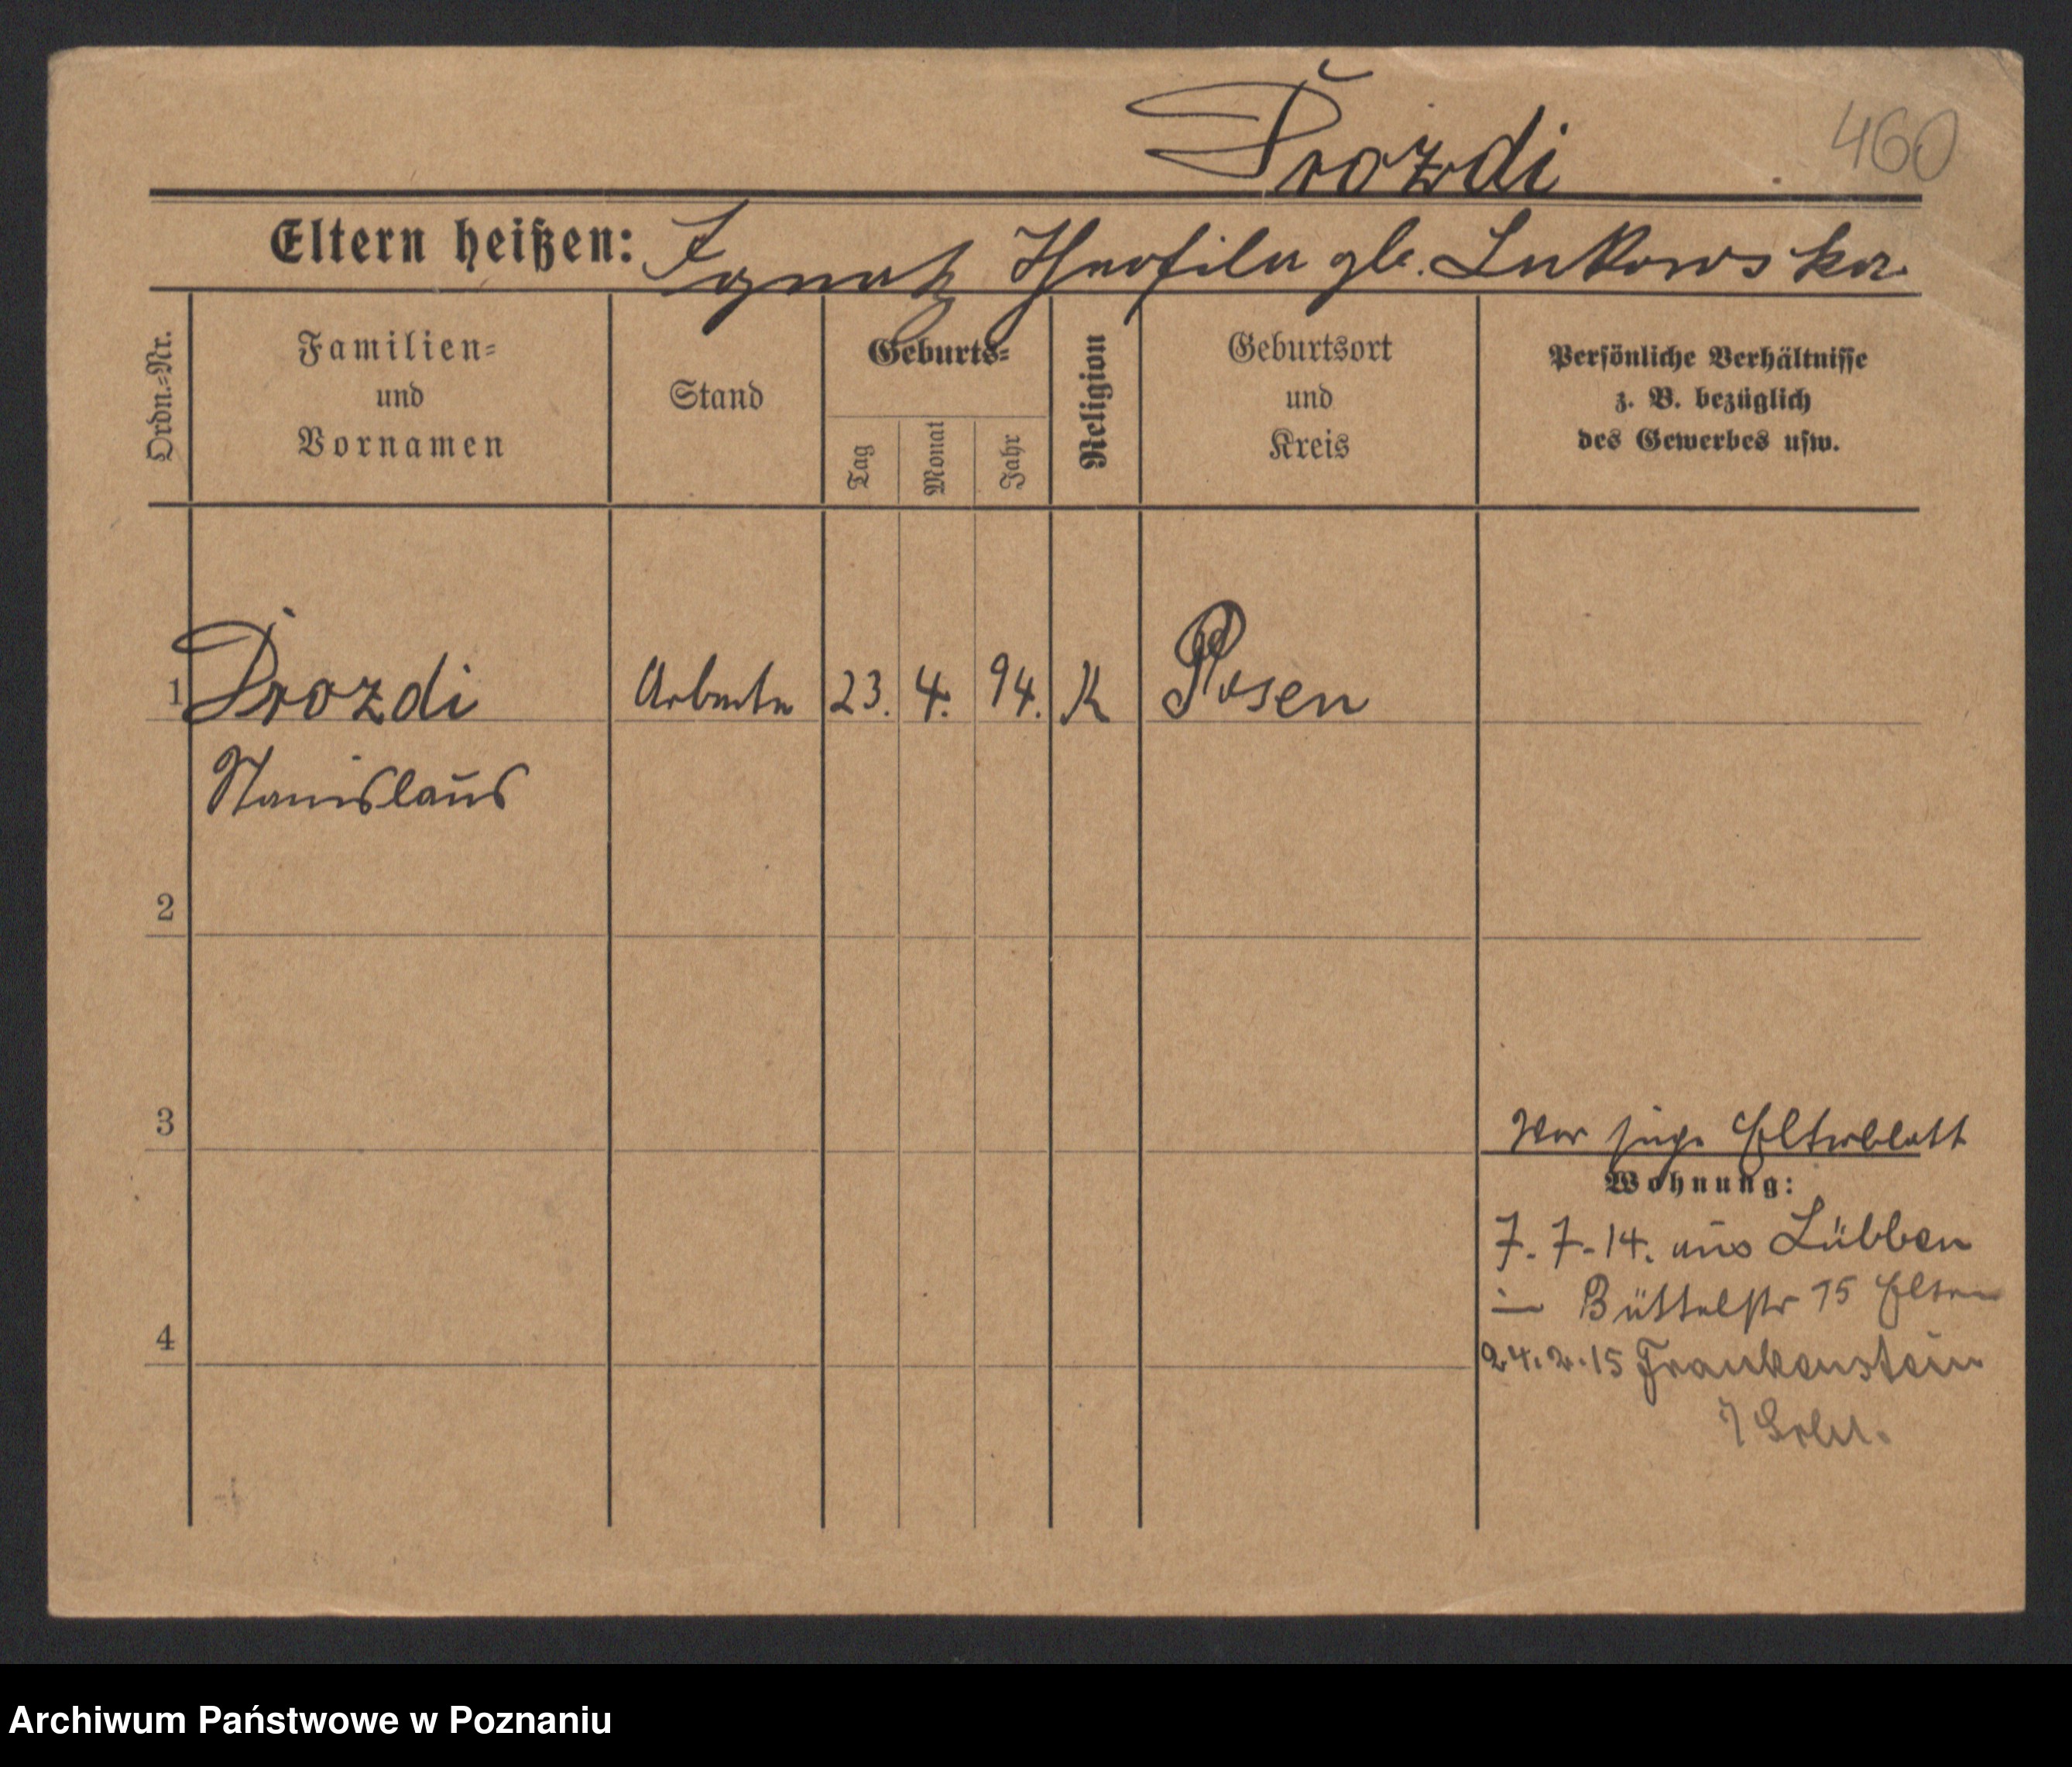 Drozdi
460
Eltern heißen: Ignatz Theofila gb. Lukowska
Ordn.-Nr.
Familien-
und
Vornamen
Stand
Geburts-
Tag
Monat
Jahr
Religion
Geburtsort
und
Kreis
Persönliche Verhältnisse
z. B. bezüglich
des Gewerbes usw.
1 Drozdi Arbeiter 23. 4. 94. K Posen
Stanislaus
2
3
Vor siehe Elternblatt
Wohnung:
7. 7. 14. aus Lübben
Büttelstr 15 Eltern
4
24. 2. 15 Frankenstein
Archiwum Państwowe w Poznaniu